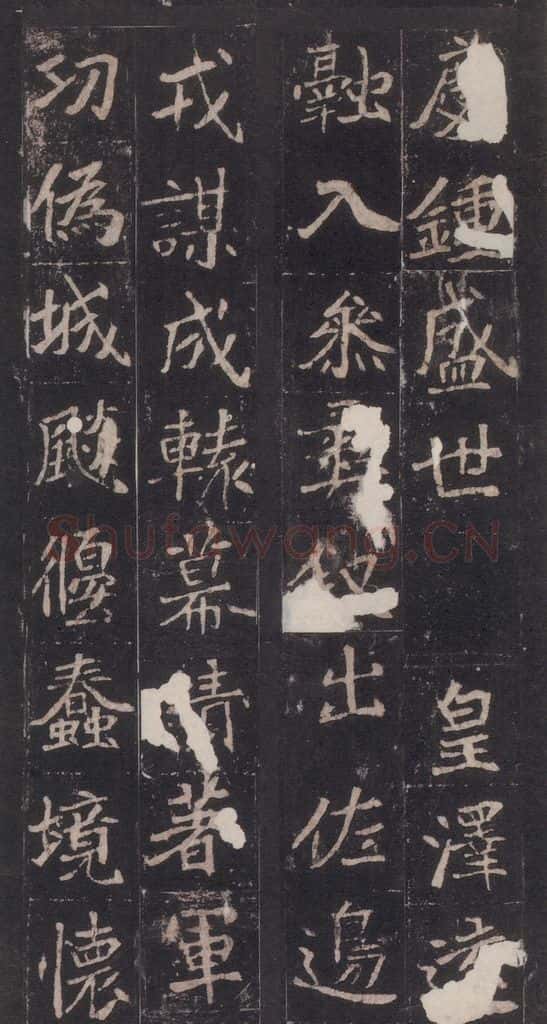 慶鍾盛世 皇澤
融入參出佐邊
戎謀成轅幕著軍
功偽城蠢境懷
Shufawang.CN